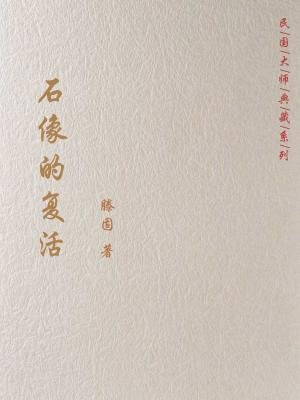 民国大师典藏系列
石像的复活
滕固 著